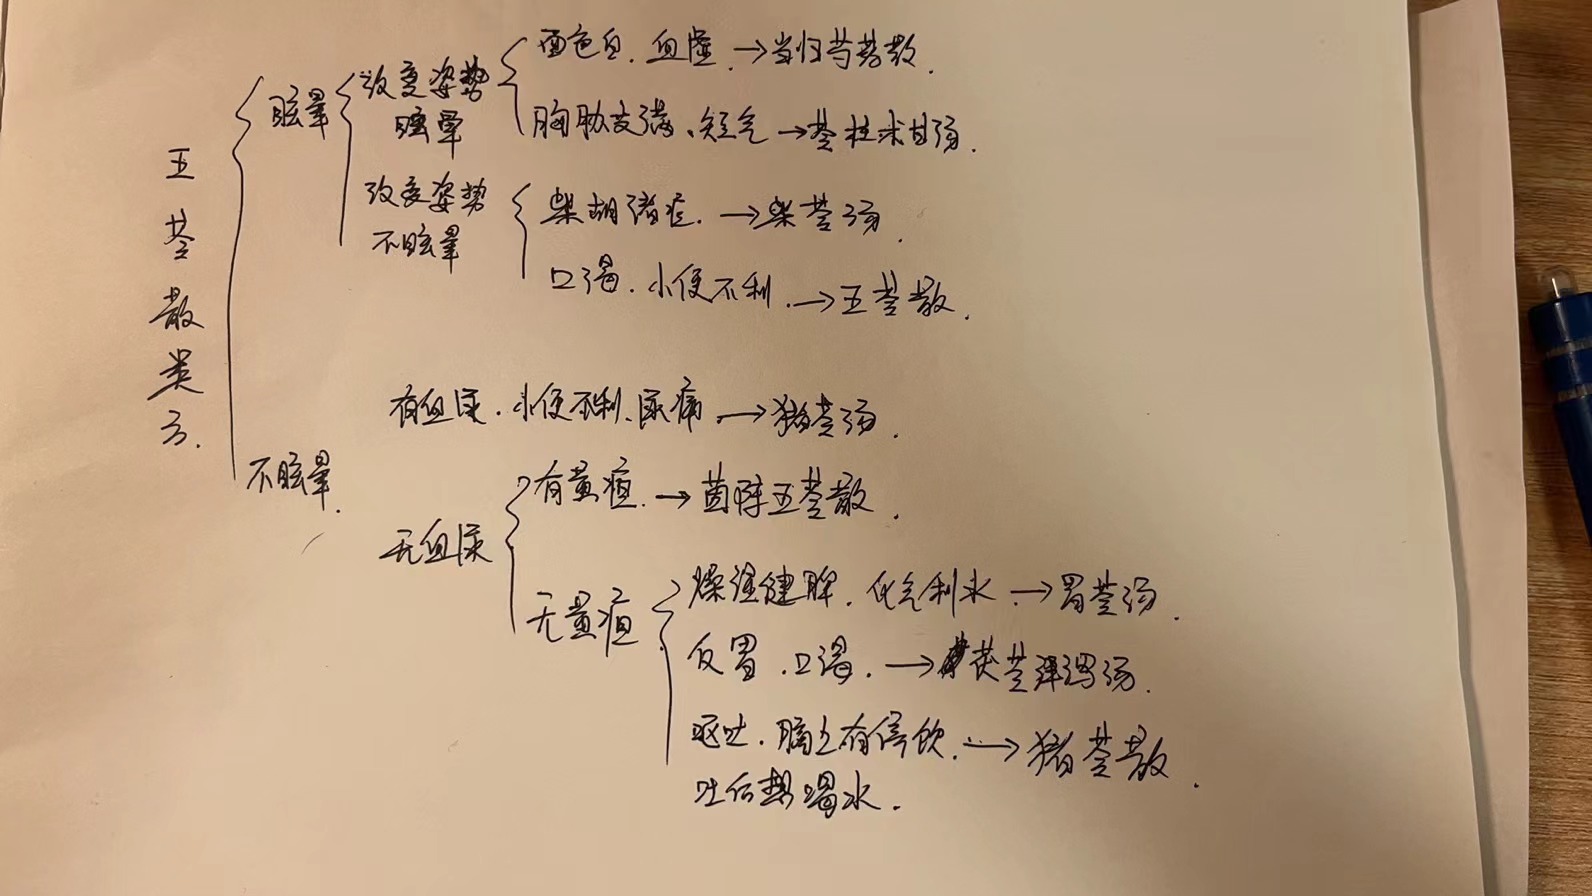 五苓散类方.
眩晕
改变姿势
眩晕
面色白.血虚.→当归芍药散.
胸胁支满、短气→苓桂术甘汤.
改变姿势
不眩晕
柴胡诸症.→柴苓汤.
口渴.小便不利.→五苓散.
不眩晕.
有血尿.小便不利、尿痛.→猪苓汤.
无血尿
有黄疸.→茵陈五苓散.
无黄疸
燥湿健脾.化气利水.→胃苓汤.
反胃.口渴.→茯苓泽泻汤.
呕吐.膈上有停饮.→猪苓散.
吐后想喝水.